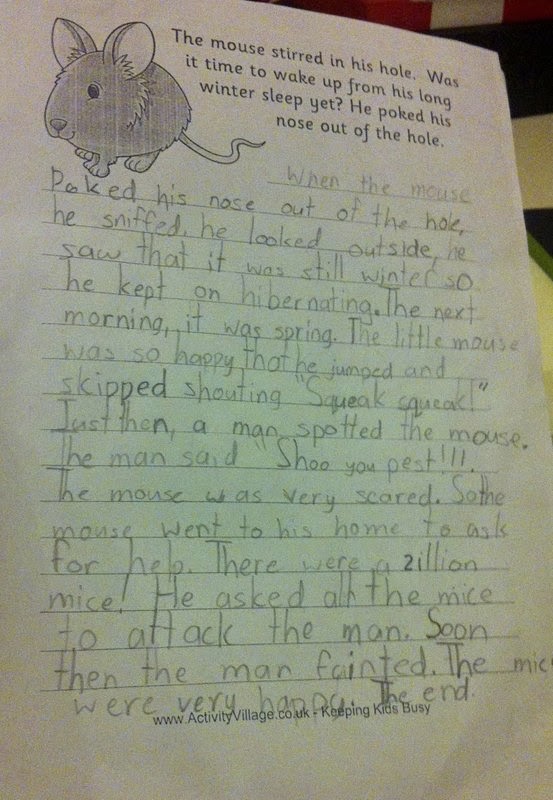 The mouse stirred in his hole. Was
it time to wake up from his long
winter sleep yet? He poked his
nose out of the hole.
When the mouse
Poked his nose out of the hole,
he sniffed. he looked outside, he
saw that it was still winter so
he kept on hibernating. The next
morning, it was spring. The little mouse
was so happy that he jumped and
skipped shouting "Squeak squeak!"
Just then, a man spotted the mouse.
The man said "Shoo you pest!!!.
The mouse was very scared. So the
mouse went to his home to ask
for help. There were a zillion
mice! He asked all the mice
to attack the man. Soon
then the man fainted. The mic
were very happy. The end.
www.ActivityVillage.co.uk - Keeping Kids Busy